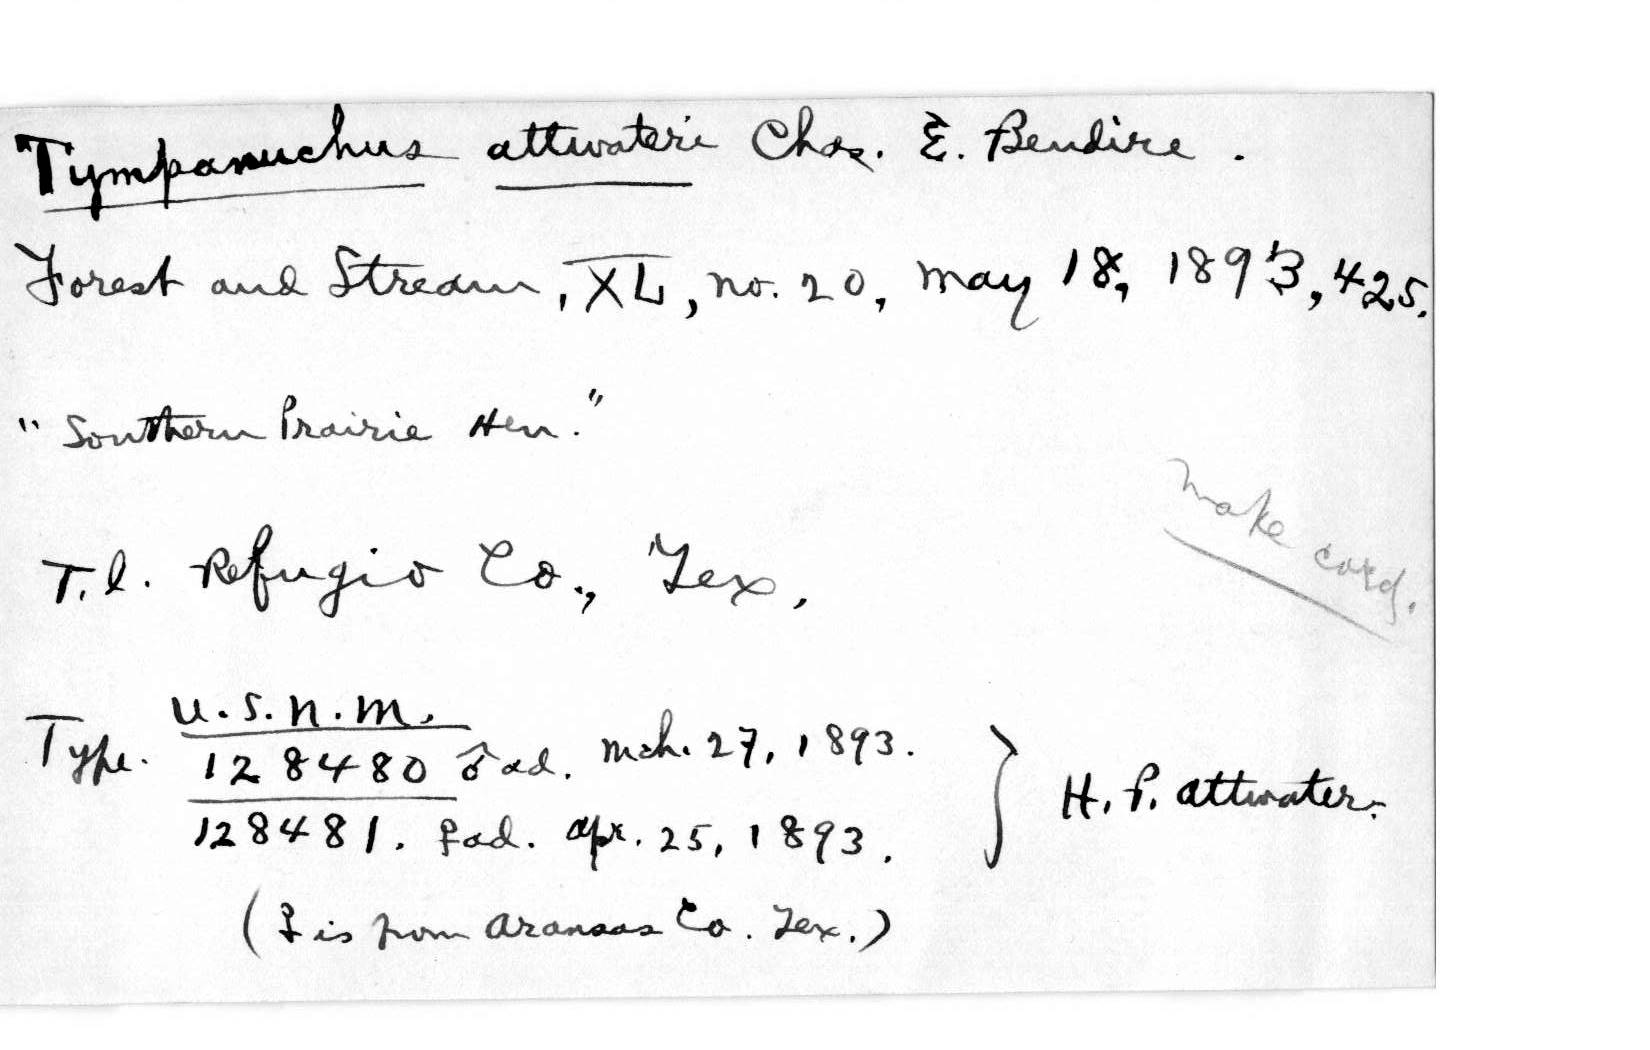 Tympanuchus attwateri Chas. E. Bendire.
Forest and Stream, XL, no. 20, May 18, 1893, 425.
"Southern Prairie Hen."
Make card.
T.l. Refugio Co., Tex.
U.S.N.M.
Type. 128480 ♂ ad. Mch. 27, 1893.
128481. ♀ ad. Apr. 25, 1893.
H. P. Attwater.
(♀ is from Aransas Co. Tex.)